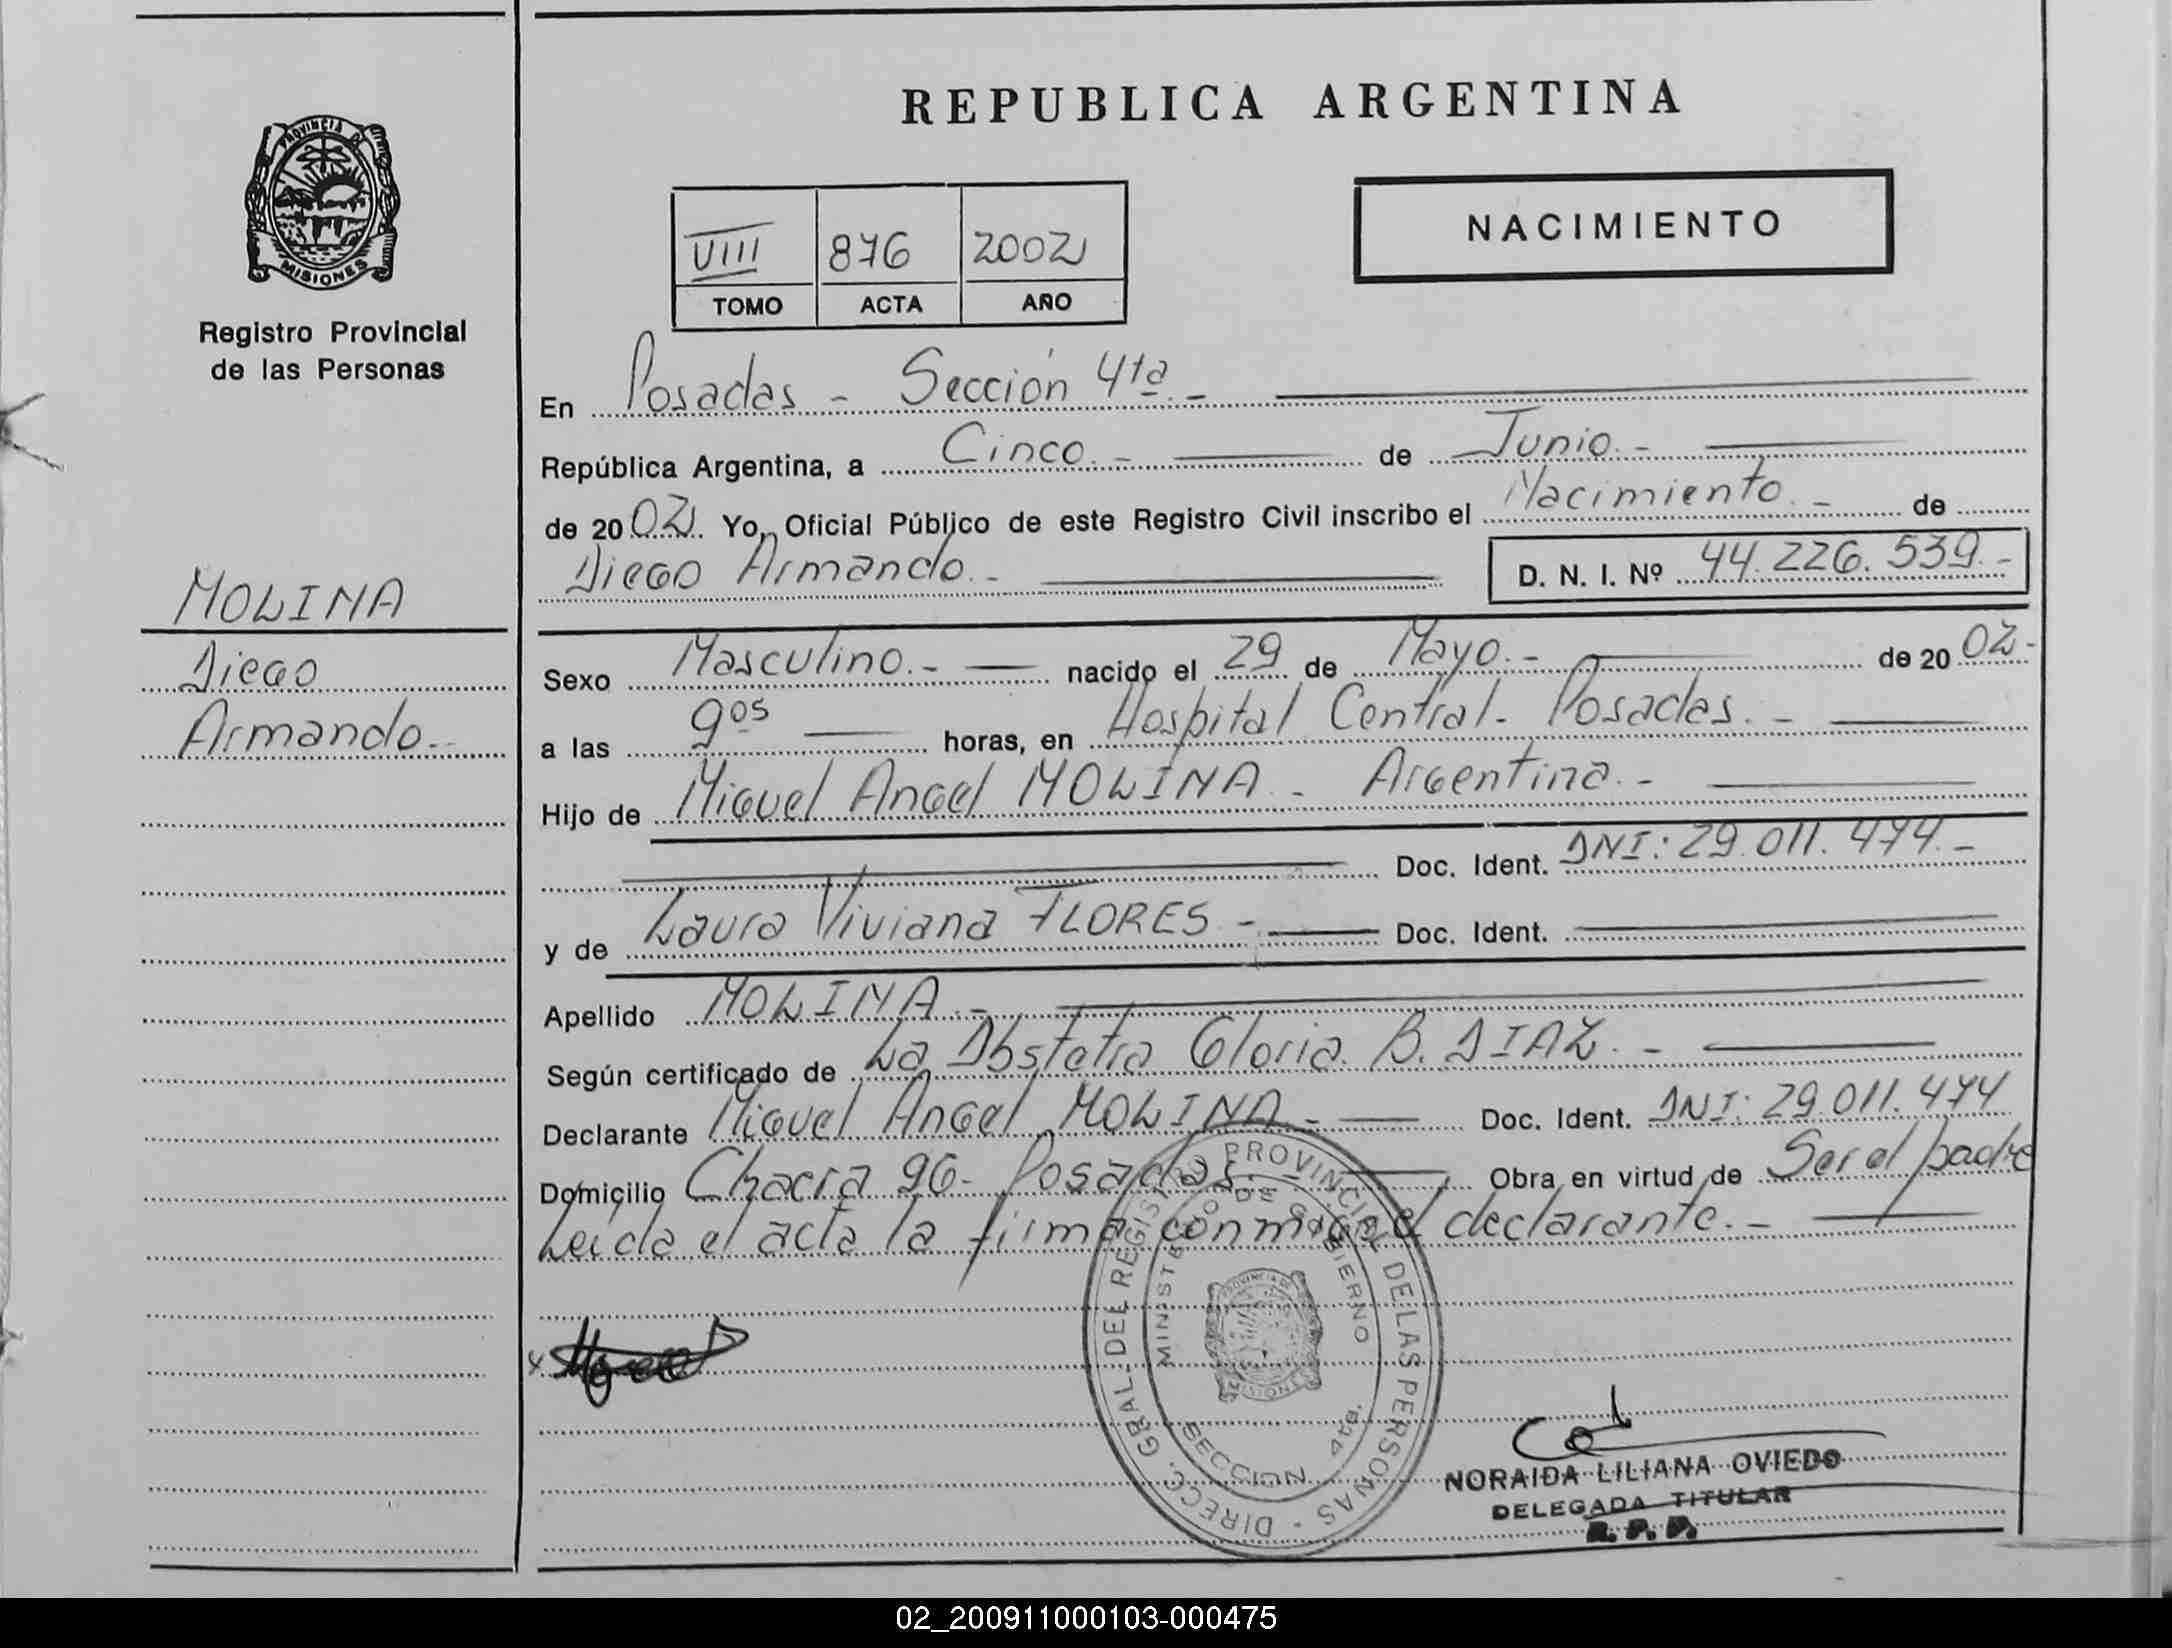 REPUBLICA ARGENTINA
PROVINCIA DE
MISIONES
Registro Provincial
de las Personas
NACIMIENTO
VIII 876 2002
TOMO ACTA AÑO
En Posadas - Sección 4ta.-
República Argentina, a Cinco.- de Junio.-
de 2002. Yo, Oficial Público de este Registro Civil inscribo el Nacimiento.- de
Diego Armando.- D. N. I. Nº 44.226.539.-
MOLINA
Diego
Armando.-
Sexo Masculino.- nacido el 29 de Mayo.- de 2002-
a las 9os horas, en Hospital Central- Posadas.-
Hijo de Miguel Angel MOLINA - Argentina.-
Doc. Ident. DNI: 29.011.474.-
y de Laura Viviana FLORES - Doc. Ident.
Apellido MOLINA.-
Según certificado de La Obstetra Gloria B. DIAZ.-
Declarante Miguel Angel MOLINA.- Doc. Ident. DNI: 29.011.474
Domicilio Chacra 96- Posadas.- Obra en virtud de Ser el padre
Leida el acta la firma conmigo el declarante.-
DIRECC. GRAL. DEL REGISTRO PROVINCIAL DE LAS PERSONAS -
MINISTERIO DE GOBIERNO
SECCION 4ta.
NORAIDA LILIANA OVIEDO
DELEGADA TITULAR
R. P. P.
02_200911000103-000475